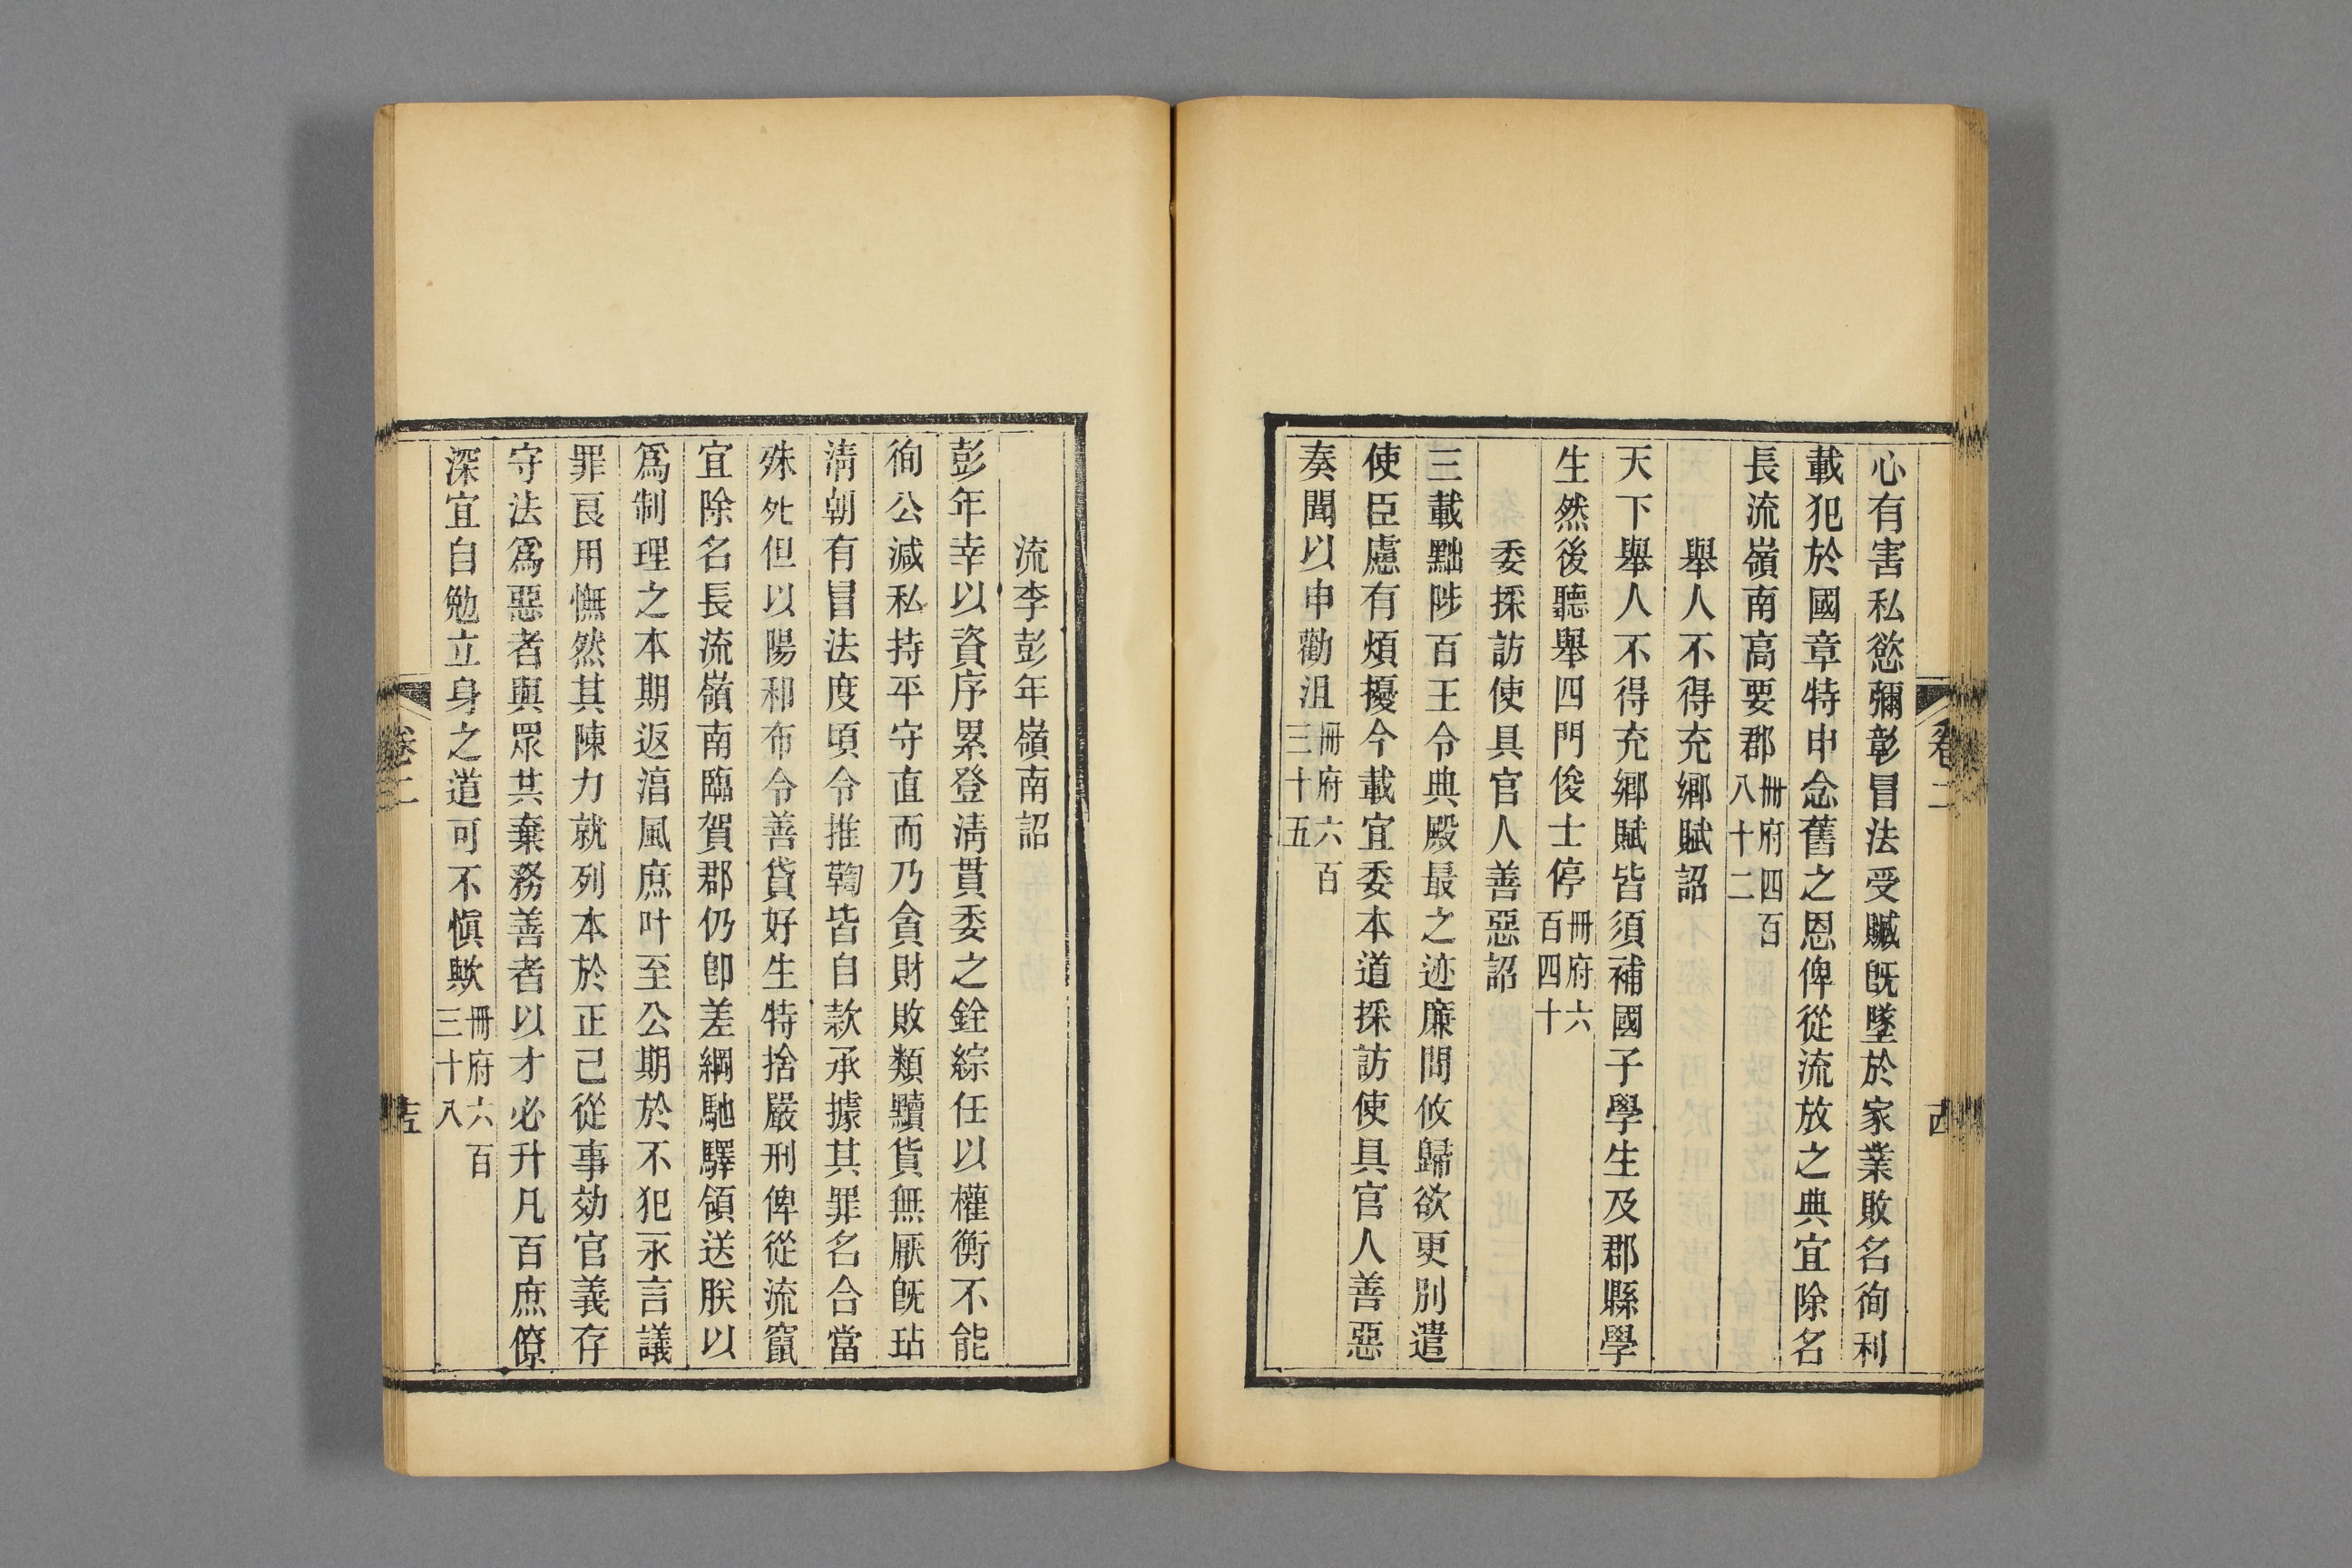 心有害私慾彌彰冒法受贓旣墜於家業敗名徇利
載犯於國章特申念舊之恩俾從流放之典宜除名
長流嶺南高要郡冊府四百八十二
舉人不得充鄉賦詔
天下舉人不得充鄉賦皆須補國子學生及郡縣學
生然後聽舉四門俊士停冊府六百四十
委採訪使具官人善惡詔
三載黜陟百王令典殿最之迹廉問攸歸欲更別遣
使臣慮有煩擾今載宜委本道採訪使具官人善惡
奏聞以申勸沮冊府六百三十五
卷二
流李彭年嶺南詔
彭年幸以資序累登淸貫委之銓綜任以權衡不能
徇公減私持平守直而乃貪財敗類黷貨無厭旣玷
淸朝有冒法度頃令推鞫皆自款承據其罪名合當
殊死但以陽和布令善貸好生特捨嚴刑俾從流竄
宜除名長流嶺南臨賀郡仍卽差綱馳驛領送朕以
爲制理之本期返淳風庶叶至公期於不犯永言議
罪良用憮然其陳力就列本於正己從事効官義存
守法爲惡者與眾共棄務善者以才必升凡百庶僚
深宜自勉立身之道可不愼歟冊府六百三十八
卷二